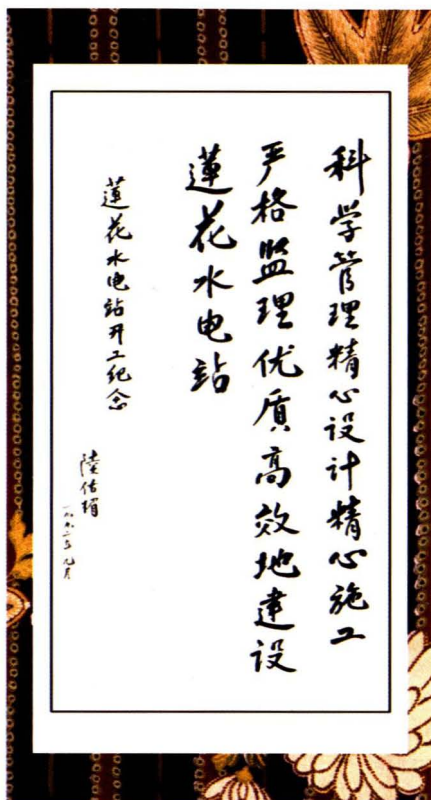 科学管理精心设计精心施工
严格监理优质高效地建设
蓮花水电站
蓮花水电站开工纪念
陸佑楣
一九九二年九月